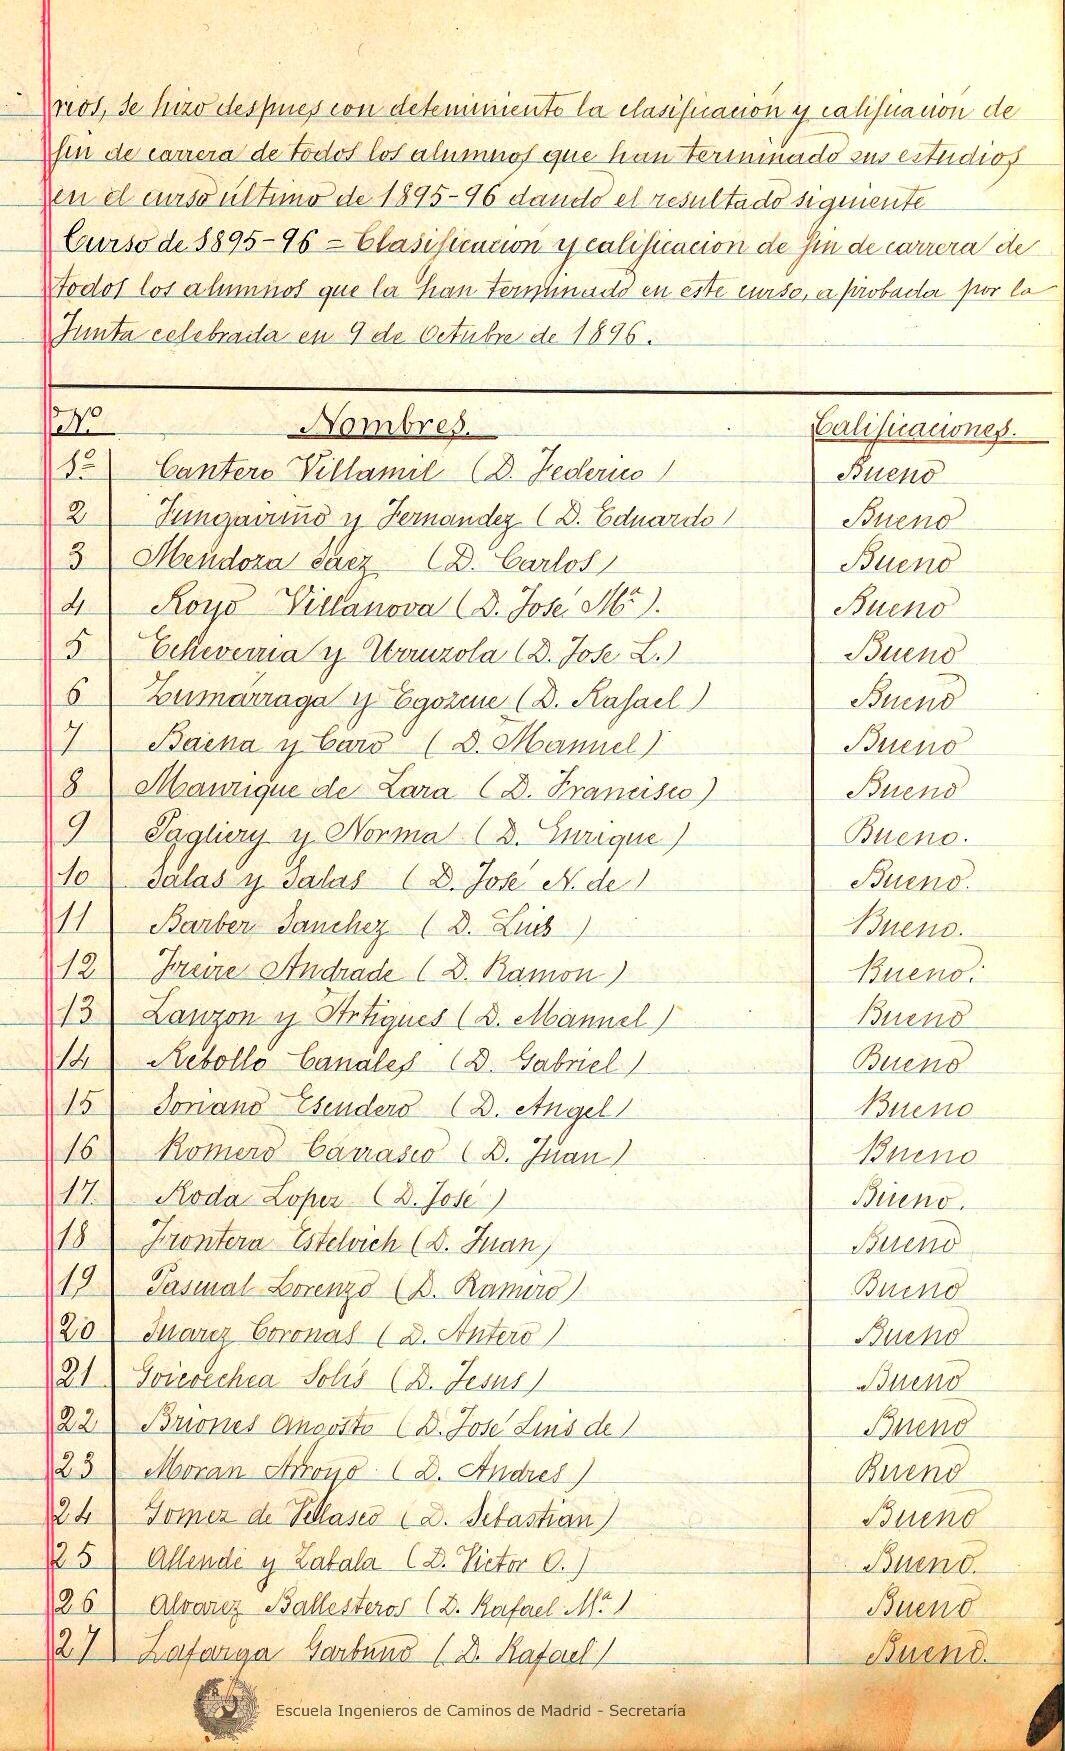 rios, se hizo despues con detenimiento la clasificación y calificación de
fin de carrera de todos los alumnos que han terminado sus estudios
en el curso último de 1895-96 dando el resultado siguiente
Curso de 1895-96 = Clasificación y calificacion de fin de carrera de
todos los alumnos que la han terminado en este curso, aprobada por la
Junta celebrada en 9 de Octubre de 1896.
Nº Nombres. Calificaciones.
1º Cantero Villamil (D. Federico) Bueno
2 Fungairiño y Fernandez (D. Eduardo) Bueno
3 Mendoza Saez (D. Carlos) Bueno
4 Royo Villanova (D. José Mª). Bueno
5 Echeverria y Urruzola (D. Jose L.) Bueno
6 Zumárraga y Egozcue (D. Rafael) Bueno
7 Baena y Caro (D. Manuel) Bueno
8 Manrique de Lara (D. Francisco) Bueno
9 Pagliery y Norma (D. Enrique) Bueno.
10 Salas y Salas (D. José N. de) Bueno.
11 Barber Sanchez (D. Luis) Bueno.
12 Freire Andrade (D. Ramon) Bueno.
13 Lanzon y Artigues (D. Manuel) Bueno
14 Rebollo Canales (D. Gabriel) Bueno
15 Soriano Escudero (D. Angel) Bueno
16 Romero Carrasco (D. Juan) Bueno
17. Roda Lopez (D. José) Bueno.
18 Frontera Estelrich (D. Juan) Bueno
19 Pascual Lorenzo (D. Ramiro) Bueno
20 Suarez Coronas (D. Antero) Bueno
21 Goicoechea Solís (D. Jesus) Bueno
22 Briones Angosto (D. José Luis de) Bueno
23 Moran Arroyo (D. Andres) Bueno
24 Gomez de Velasco (D. Sebastian) Bueno
25 Allende y Zabala (D. Victor O.) Bueno.
26 Alvarez Ballesteros (D. Rafael Mª) Bueno
27 Lafarga Garbuno (D. Rafael) Bueno.
Escuela Ingenieros de Caminos de Madrid - Secretaría